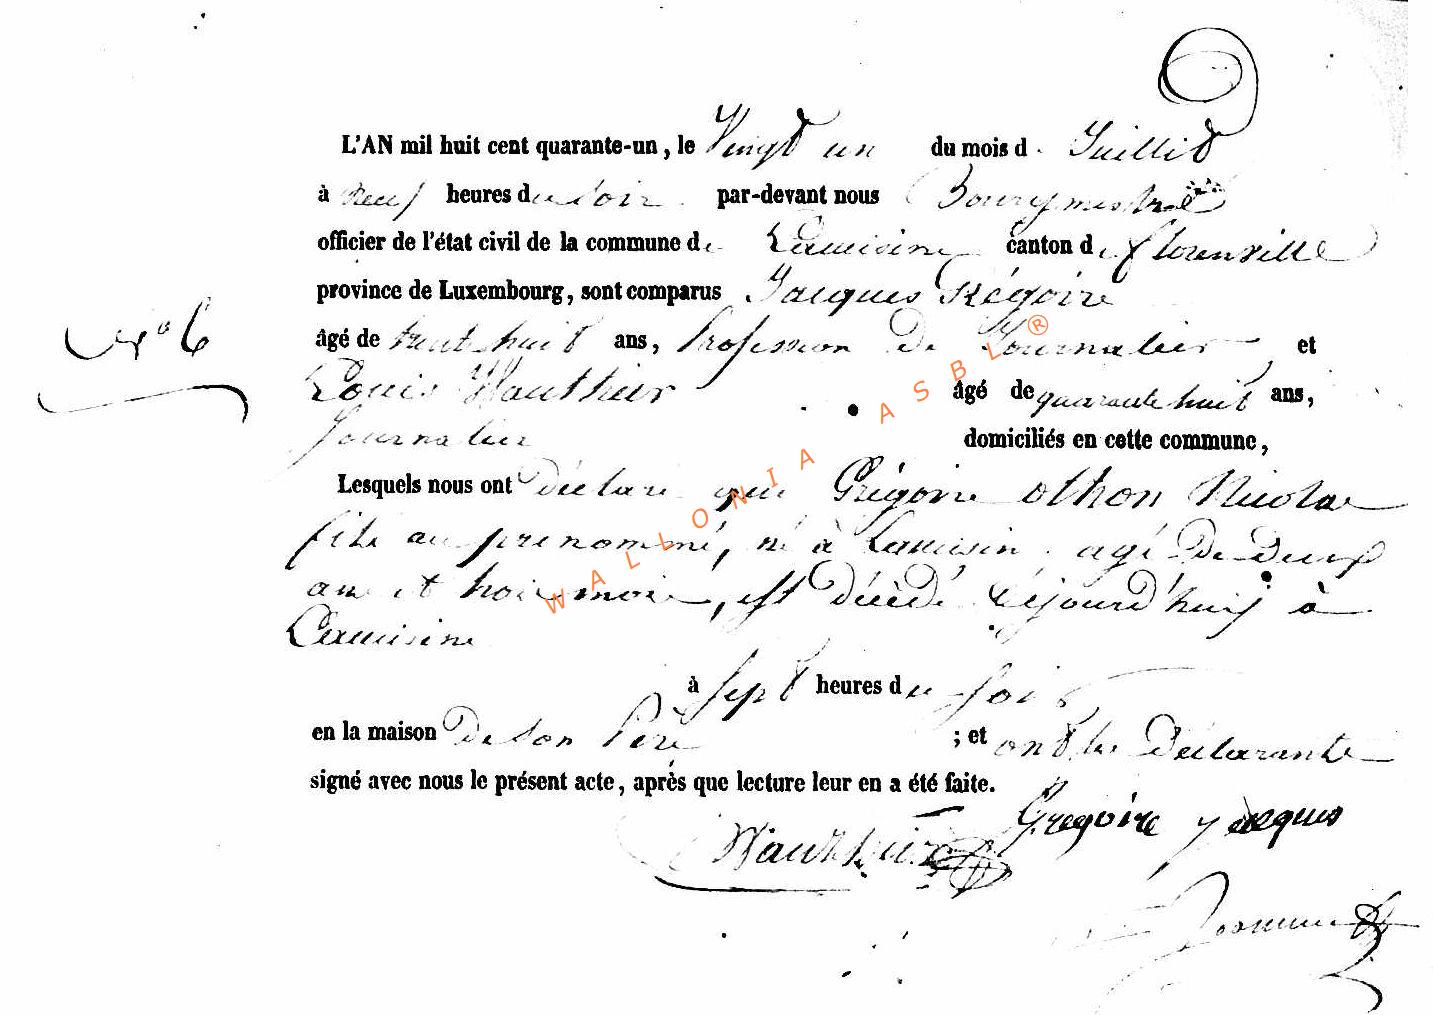 L'AN mil huit cent quarante-un, le Vingt un du mois d. Juillet
à neuf heures du Soir par-devant nous Bourgmestre
officier de l'état civil de la commune de canton de florenville
province de Luxembourg, sont comparus Jacques Grégoire
N° 6
âgé de trente huit ans, Profession De Journalier et
Louis Wauthier âgé de quarante huit ans,
Journalier domiciliés en cette commune,
Lesquels nous ont Déclaré que Grégoire othon Nicolas
fils au prénommé, né à agé De Deux
ans et trois mois, est décédé cejourd'huij à
à Sept heures du Soir
en la maison De Son Père ; et ont les Déclarants
signé avec nous le présent acte, après que lecture leur en a été faite.
Wauthier Grégoire jacques
WALLONIA ASBL®